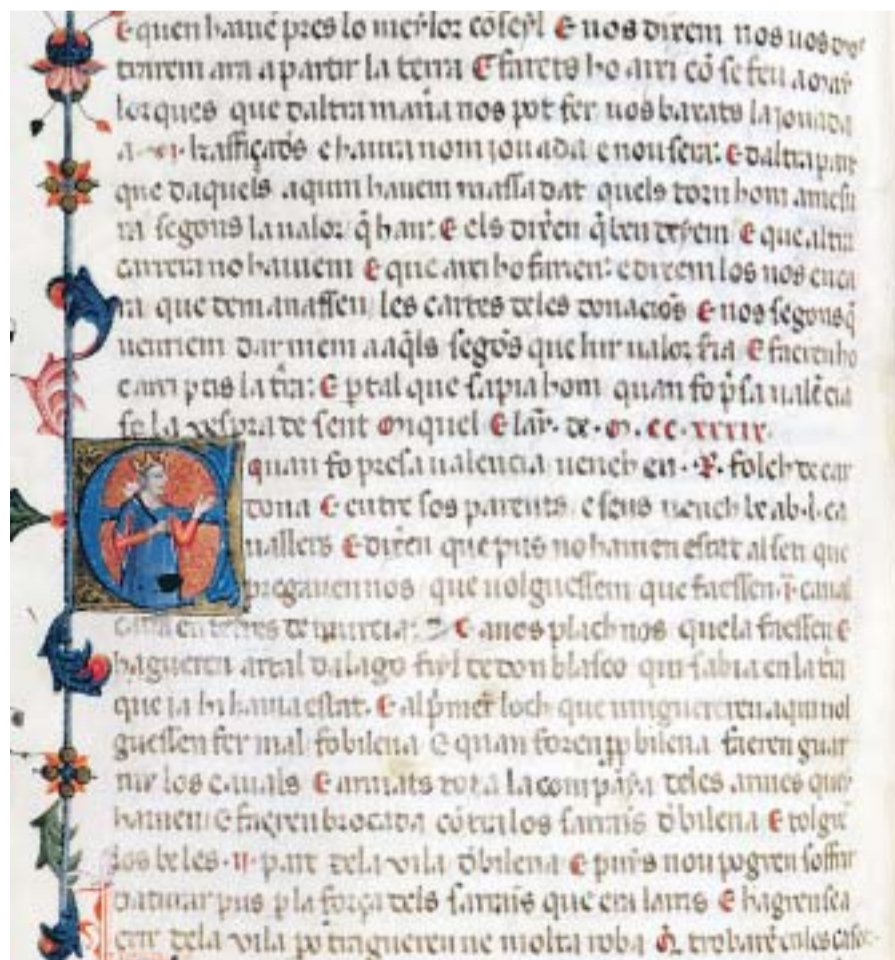 E quen haurē pres lo meylor cōseyl E nos direm nos uos
trarem ara a partir la terra E farets ho axi cō se feu a
lorques que daltra maña nos pot fer uos baxats la jouada
a ·VI· kafficades e haura nom jouada e nou sera: E daltra part
que daquels aquin hauem massa dat quels torn hom a mesu
ra segons la ualor q̄ han: E els dirēn q̄ ben deyem E que altra
carrera no hauem E que axi ho farien: e direm los nos enca
ra que demanassen les cartes de les donaciōs E nos segons q̄
ueuriem darmem a aq̄ls segōs que lur ualor s̄ia E faeren ho
e axi ptis la t̄ra: E p tal que sapia hom quan fo p̄sa ualēcia
fo la vespra de sent Miquel E lan· de· M· CC· XXXIX·
E quan fo presa ualencia uench en· R· folch de car
dona E entre sos parents e seus uench be ab· L· ca
uallers E dirēn que pus no hauien estat al seu que
pregauen nos que uolguessem que faessen· ī· caual
cada en terres de murcia: E a nos plach nos que la faessen E
hagueren artal dalago fiyl de don blasco qui sabia en la t̄ra
que ja hi hauia estat. E al p̄mer loch que uingueren aqui uol
guessen fer mal fo bilena E quan foren p bilena faeren guar
nir los cauals E armats tota la compaỹa de les armes que
hauien E faeren brocada cōtra los sarrains d bilena E tolgē
los be les· II· parts dela vila d bilena E puys nou pogren soffrir
daturar pus p la força dels sarrains que eren lains E hagren se a
exir dela vila po tragueren ne molta roba q̄ trobarē en les cases·